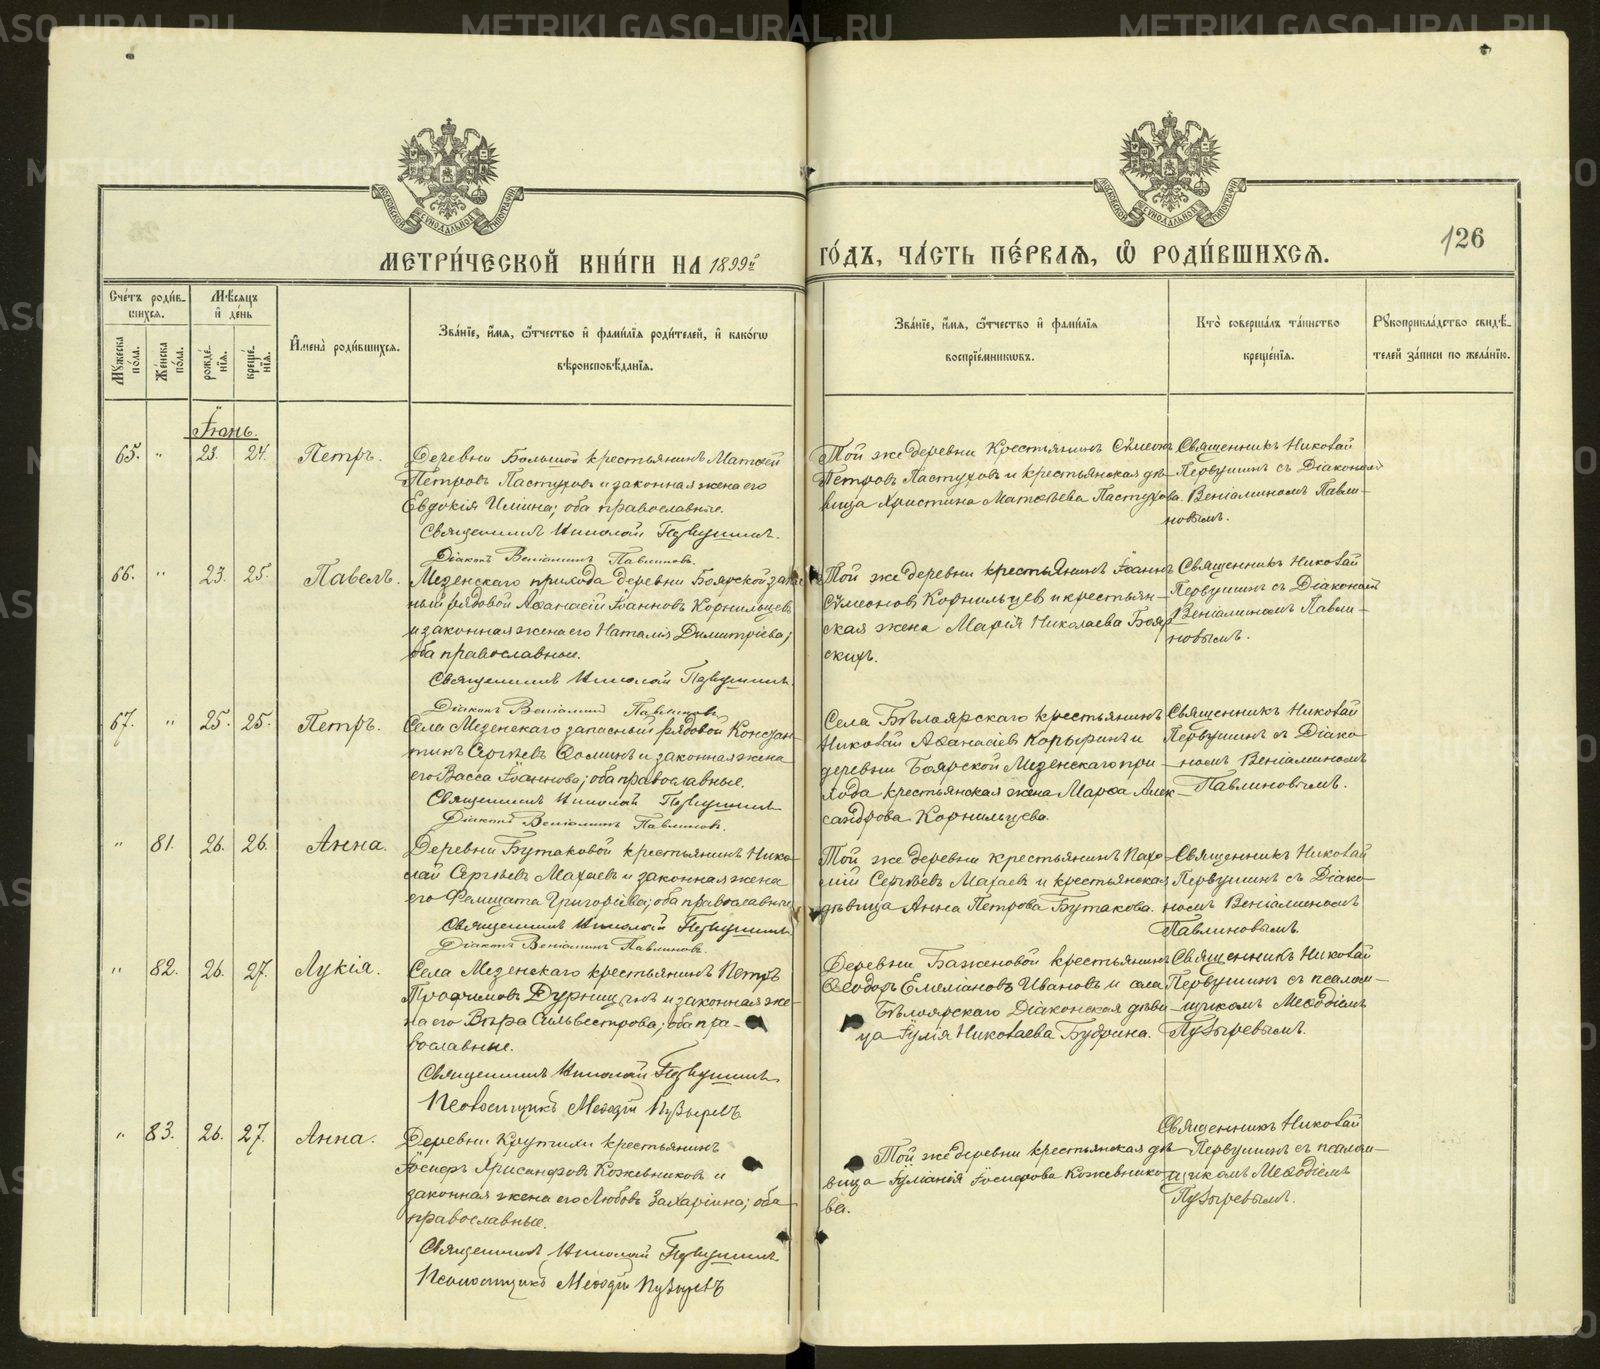 МЕТРИ́ЧЕСКОЙ КНИ́ГИ НА 1899й
ГО́ДЪ, ЧА́СТЬ ПЕ́РВАѦ, Ѿ РОДИ́ВШИХСѦ.
126
Сче́тъ роди́в-
шихсѧ.
Мѣ́сѧцъ
и҆ де́нь
Мꙋ́жеска по́ла.
Же́нска по́ла.
рожде́-
нїѧ.
креще́-
нїѧ.
И҆мена̀ роди́вшихсѧ.
Зва́нїе, и҆́мѧ, ѻ҆́тчество и҆ фами́лїѧ роди́телей, и҆ како́гѡ
вѣроисповѣ́данїѧ.
Зва́нїе, и҆́мѧ, ѻ҆́тчество и҆ фами́лїѧ
воспрїе́мникѡвъ.
Кто̀ соверша́лъ та́инство
креще́нїѧ.
Рꙋкоприкла́дство свидѣ́-
телей за́писи по жела́нїю.
Іюнь.
65. " 23. 24. Петръ.
Деревни Большой крестьянинъ Матѳей
Петровъ Пастуховъ и законная жена его
Евдокія Ильина; оба православные.
Священникъ Николай Первушинъ.
Діаконъ Веніаминъ Павлиновъ.
Той же деревни Крестьянинъ Сѵмеонъ
Петровъ Пастуховъ и крестьянская дѣ-
вица Христина Матѳѣева Пастухова.
Священникъ Николай
Первушинъ съ Діакономъ
Веніаминомъ Павли-
новымъ.
66. " 23. 25. Павелъ.
Мезенскаго прихода деревни Боярской запас
ный рядовой Аѳанасій Іоанновъ Корнильцевъ
и законная жена его Наталія Димитріева;
оба православные.
Священникъ Николай Первушинъ.
Діаконъ Веніаминъ Павлиновъ.
Той же деревни крестьянинъ Іоаннъ
Сѵмеоновъ Корнильцев и крестьян-
ская жена Марія Николаева Бояр
скихъ.
Священникъ Николай
Первушинъ съ Діакономъ
Веніаминомъ Павли-
новымъ.
67. " 25. 25. Петръ.
Села Мезенскаго запасный рядовой Констан-
тинъ Сергѣевъ Ѳоминъ и законная жена
его Васса Іоаннова; оба православные.
Священникъ Николай Первушинъ
Діаконъ Веніаминъ Павлиновъ.
Села Бѣлоярскаго крестьянинъ
Николай Аѳанасіевъ Корыринъ и
деревни Боярской Мезенскаго при-
хода крестьянская жена Марѳа Алек-
сандрова Корнильцева.
Священникъ Николай
Первушинъ съ Діако-
номъ Веніаминомъ
Павлиновымъ.
" 81. 26. 26. Анна.
Деревни Бутаковой крестьянинъ Нико-
лай Сергѣевъ Махаевъ и законная жена
его Фелицата Григорьева; оба православные
Священникъ Николай Первушинъ
Діаконъ Веніаминъ Павлиновъ.
Той же деревни крестьянинъ Пахо-
мій Сергѣевъ Махаевъ и крестьянская
дѣвица Анна Петрова Бутакова.
Священникъ Николай
Первушинъ съ Діако-
номъ Веніаминомъ
Павлиновымъ.
" 82. 26. 27. Лукія.
Села Мезенскаго крестьянинъ Петръ
Трофимовъ Дурницынъ и законная же-
на его Вѣра Сильвестрова; оба пра-
вославные.
Священникъ Николай Первушинъ
Псаломщикъ Меѳодій Пузыревъ
Деревни Баженовой крестьянинъ
Ѳеодоръ Емеліановъ Ивановъ и села
Бѣлоярскаго Діаконская дѣви-
ца Іулія Николаева Будрина.
Священникъ Николай
Первушинъ съ псалом-
щикомъ Меѳодіемъ
Пузыревымъ.
" 83. 26. 27. Анна.
Деревни Крутихи крестьянинъ
Іосифъ Хрисанфовъ Кожевниковъ и
законная жена его Любовь Захаріина; оба
православные.
Священникъ Николай Первушинъ
Псаломщикъ Меѳодій Пузыревъ
Той же деревни крестьянская дѣ-
вица Іуліанія Іосифова Кожевнико-
ва.
Священникъ Николай
Первушинъ съ псалом-
щикомъ Меѳодіемъ
Пузыревымъ.
METRIKI.GASO-URAL.RU